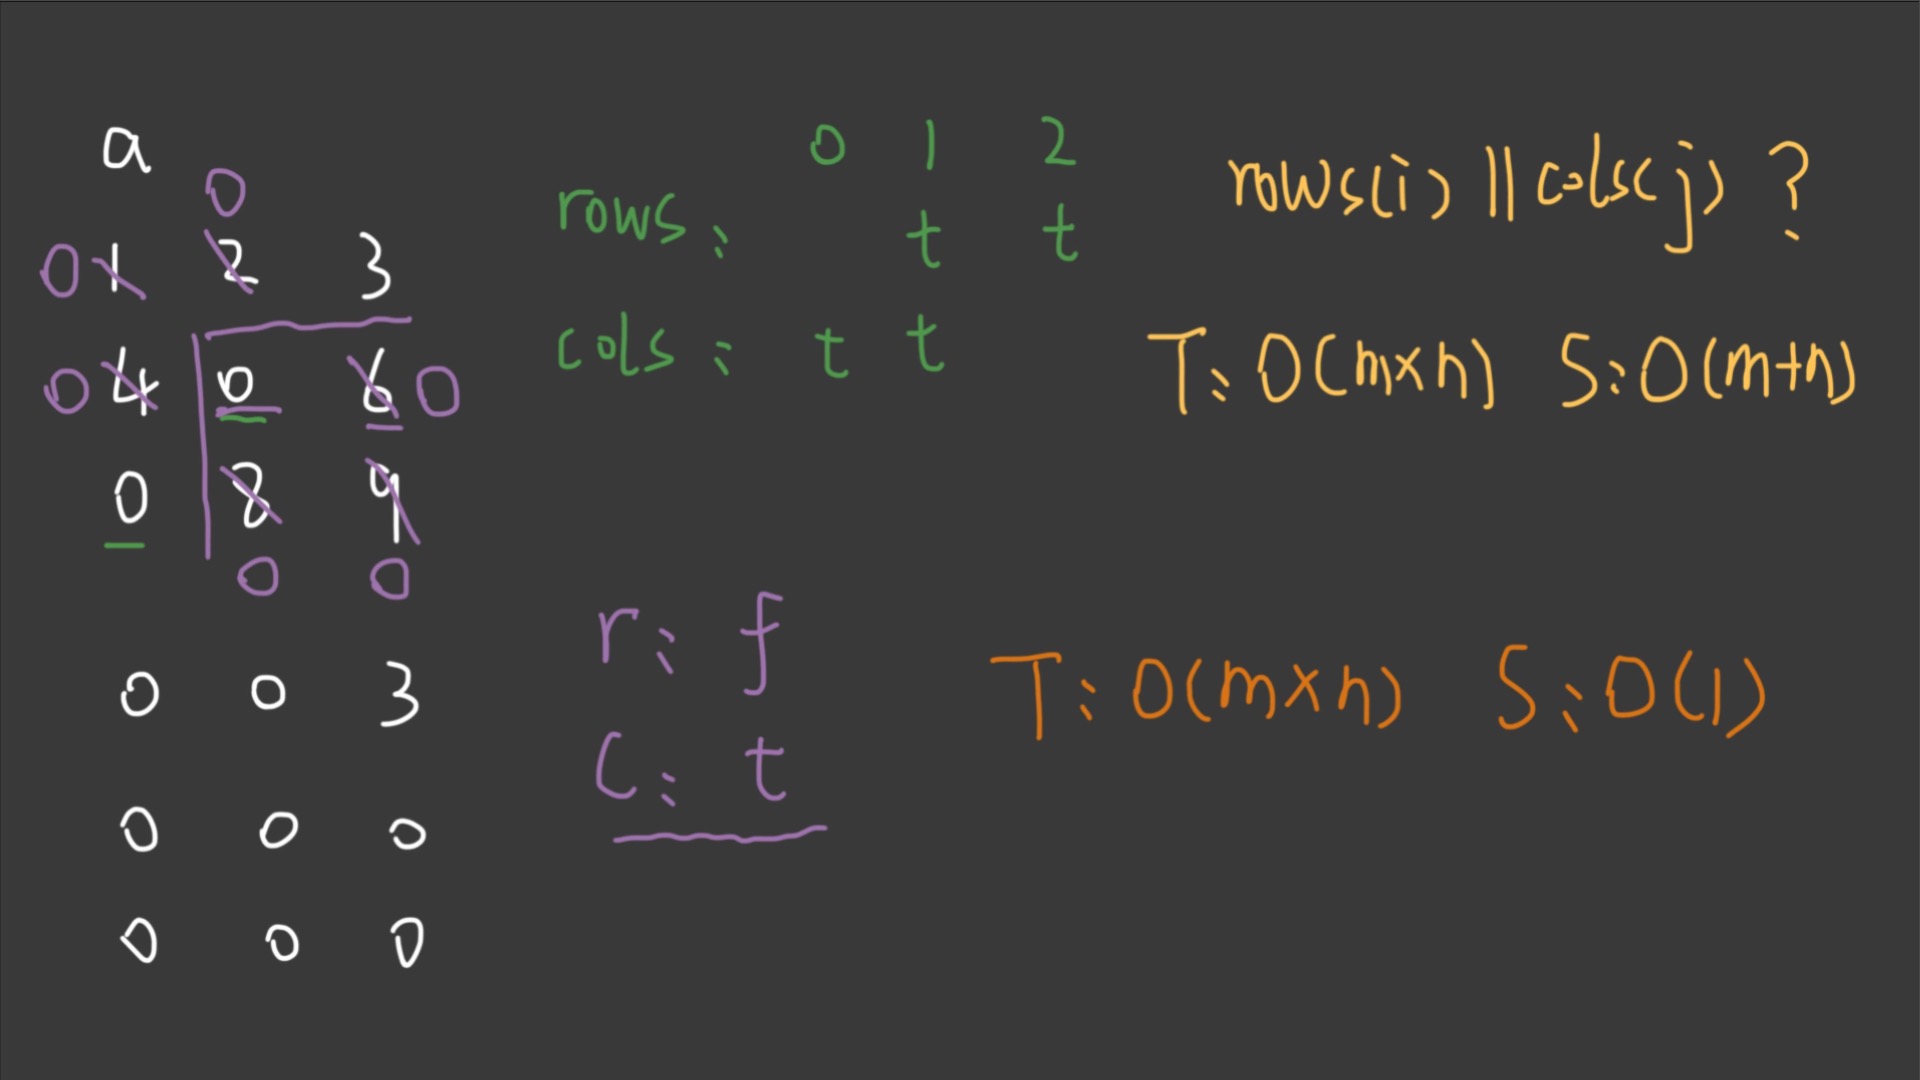 a
0
0 1 2 3
0 4 0 6 0
0 8 9
0 0
0 0 3
0 0 0
0 0 0
0 1 2
rows: t t
cols: t t
rows(i) || cols(j) ?
T: O(m×n) S: O(m+n)
r: f
c: t
T: O(m×n) S: O(1)